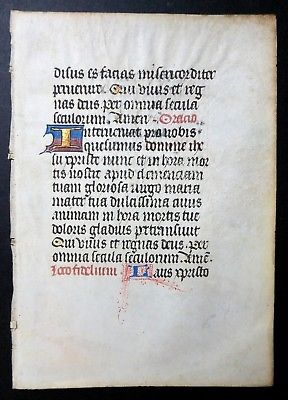 disus es facias misericorditer
peruenire. Qui viuis et reg
nas deus per omnia secula
seculorum. Amen. Oracio
Interueniat pro nobis
quesumus domine ihe
su xpriste nunc et in hora mor
tis nostre apud clemenciam
tuam gloriosa uirgo maria
mater tua dulcissima cuius
animam in hora mortis tue
doloris gladius pertransiuit
Qui viuis et regnas deus. Per
omnia secula seculorum. Amē.
fidelium Laus xpristo